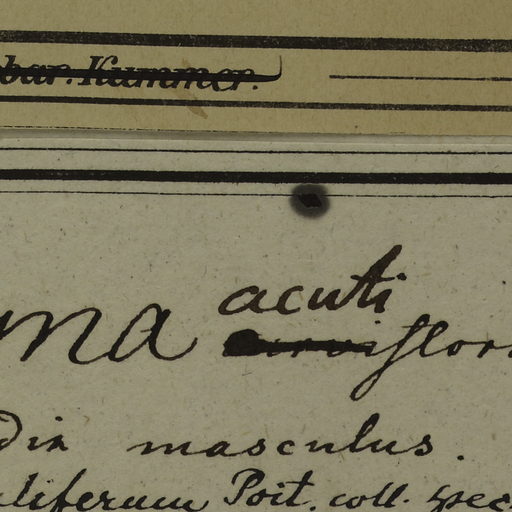 bar. Kummer.
acuti
ma flor
dix masculus.
liferum Poit. coll. spec